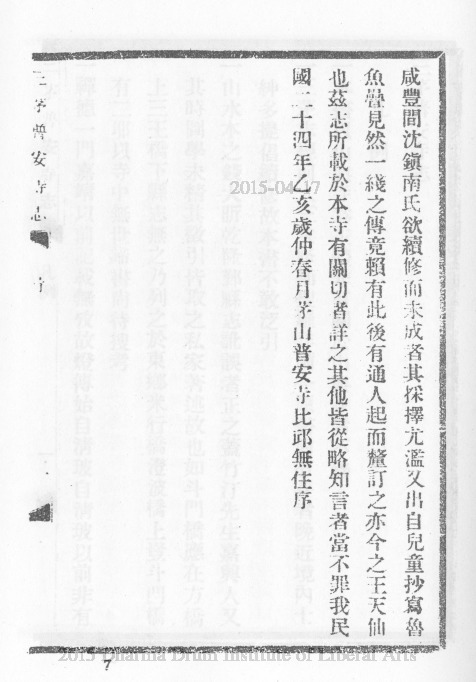 咸豐間沈鎭南氏欲續修而未成者其採擇尤濫又出自兒童抄寫魯
魚疊見然一綫之傳竟賴有此後有通人起而釐訂之亦今之王天仙
也茲志所載於本寺有關切者詳之其他皆從略知言者當不罪我民
國二十四年乙亥歲仲春月茅山普安寺比邱無住序
普安寺志
2015-04-17
2015 Dharma Drum Institute of Liberal Arts
7